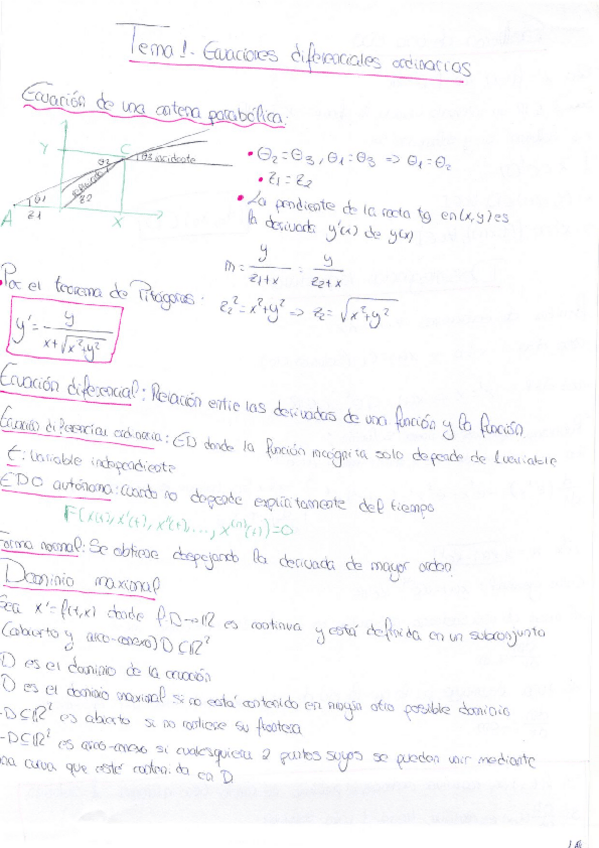 Tema 1. Ecuaciones diferenciales ordinarias
Ecuación de una antena parabólica:
Y
C
θ2
θ3 incidente
A
θ1
z1
z2
X
• θ2=θ3, θ1=θ3 => θ1=θ2
• z1=z2
• La pendiente de la recta tg en (x,y) es
la derivada y'(x) de y(x)
m= y/(z1+x) = y/(z2+x)
• Por el teorema de Pitágoras: z2²=x²+y² => z2=√(x²+y²)
y'= y/(x+√(x²+y²))
Ecuación diferencial: Relación entre las derivadas de una función y la función
Ecuación diferencial ordinaria: ED donde la función incógnita solo depende de 1 variable
t: variable independiente
EDO autónoma: cuando no depende explícitamente del tiempo
F(x(t), x'(t), x''(t), ..., x^(n)(t))=0
Forma normal: Se obtiene despejando la derivada de mayor orden
Dominio maximal
Sea x'=f(t,x) donde f:D→ℝ es continua y está definida en un subconjunto
(abierto y arco-conexo) D⊆ℝ²
D es el dominio de la ecuación
D es el dominio maximal si no está contenido en ningún otro posible dominio
-D⊆ℝ² es abierto si no contiene su frontera
-D⊆ℝ² es arco-conexo si cualesquiera 2 puntos suyos se pueden unir mediante
una curva que esté contenida en D